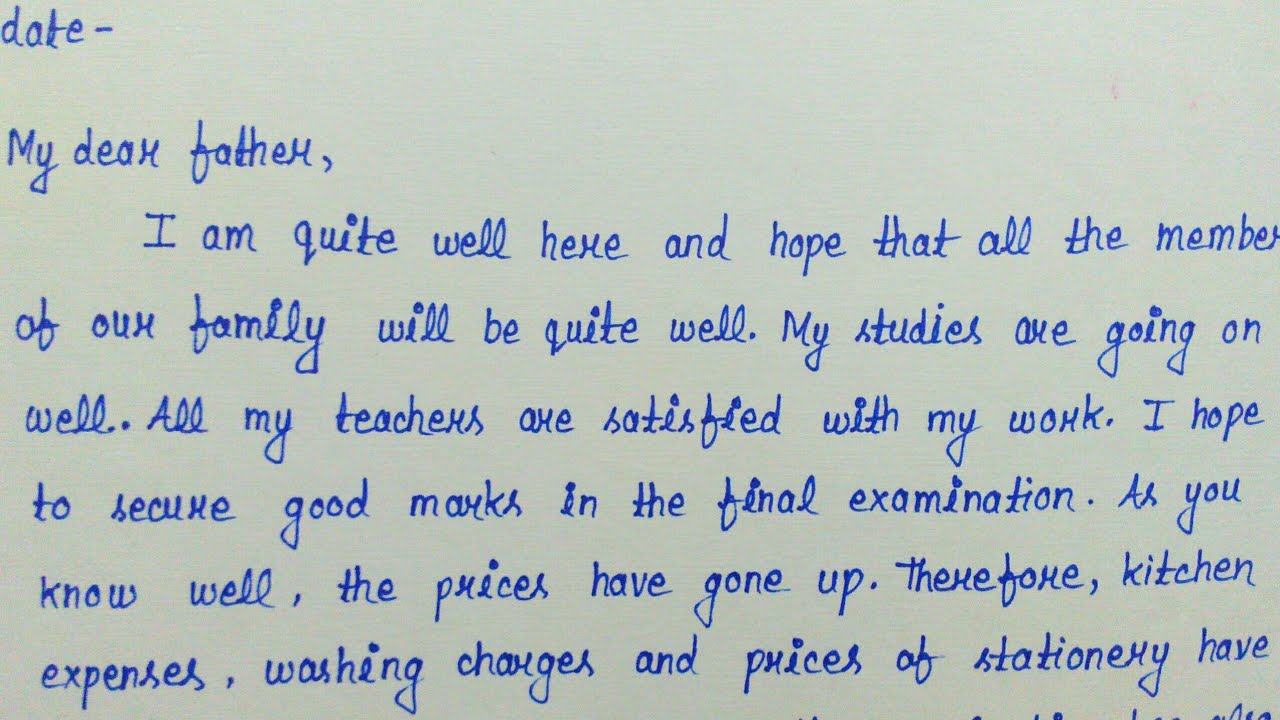 date -
My dear father,
I am quite well here and hope that all the member
of our family will be quite well. My studies are going on
well. All my teachers are satisfied with my work. I hope
to secure good marks in the final examination. As you
know well, the prices have gone up. Therefore, kitchen
expenses, washing charges and prices of stationery have
also